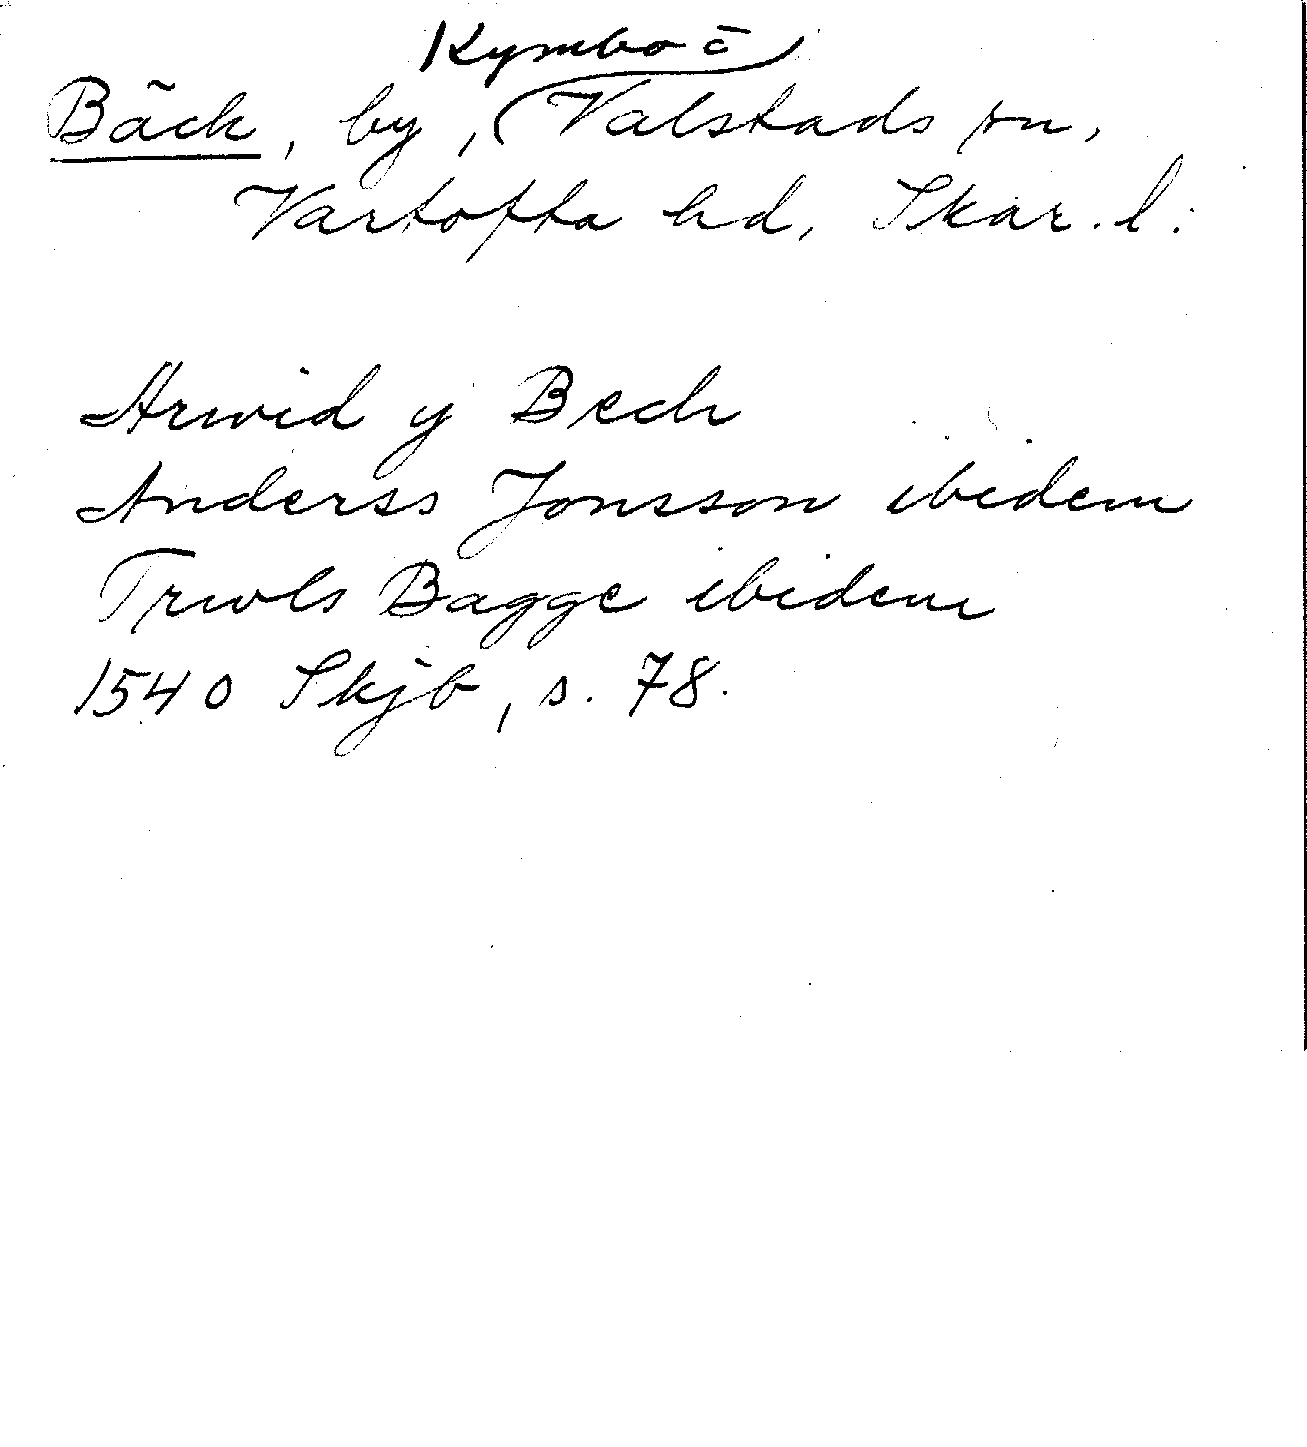 Kymbo c̄
Bäck, by, Valstads sn,
Vartofta hd, Skar. l.
Arwid y Bech
Anderss Jonsson ibidem
Trwls Bagge ibidem
1540 Skjb, s. 78.